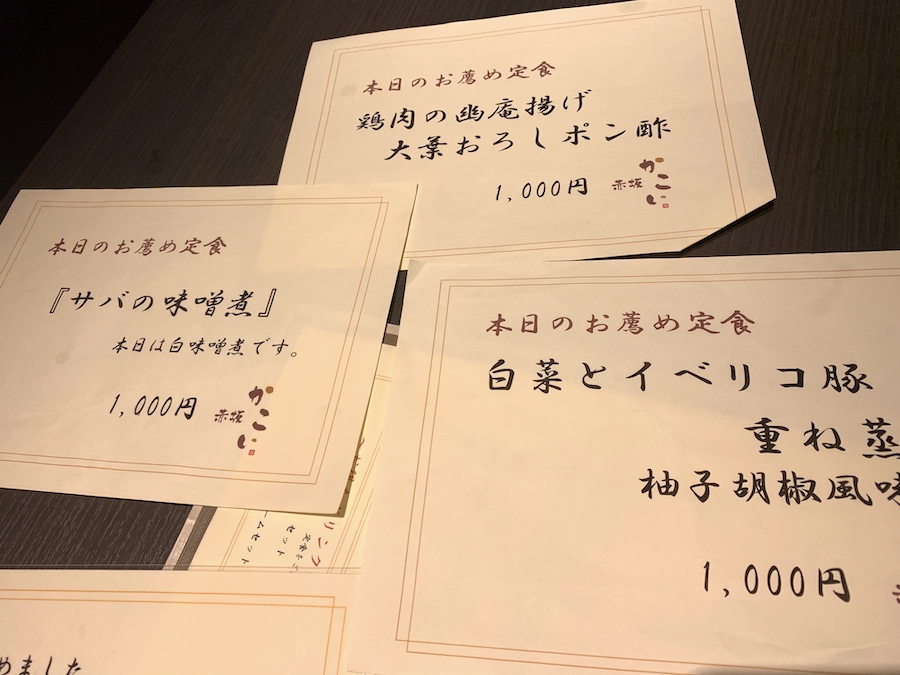 本日のお薦め定食
鶏肉の幽庵揚げ
大葉おろしポン酢
1,000円
赤坂 かこい
本日のお薦め定食
『サバの味噌煮』
本日は白味噌煮です。
1,000円
赤坂 かこい
本日のお薦め定食
白菜とイベリコ豚
重ね蒸
柚子胡椒風味
1,000円
リンク
セット
ムセット
めました